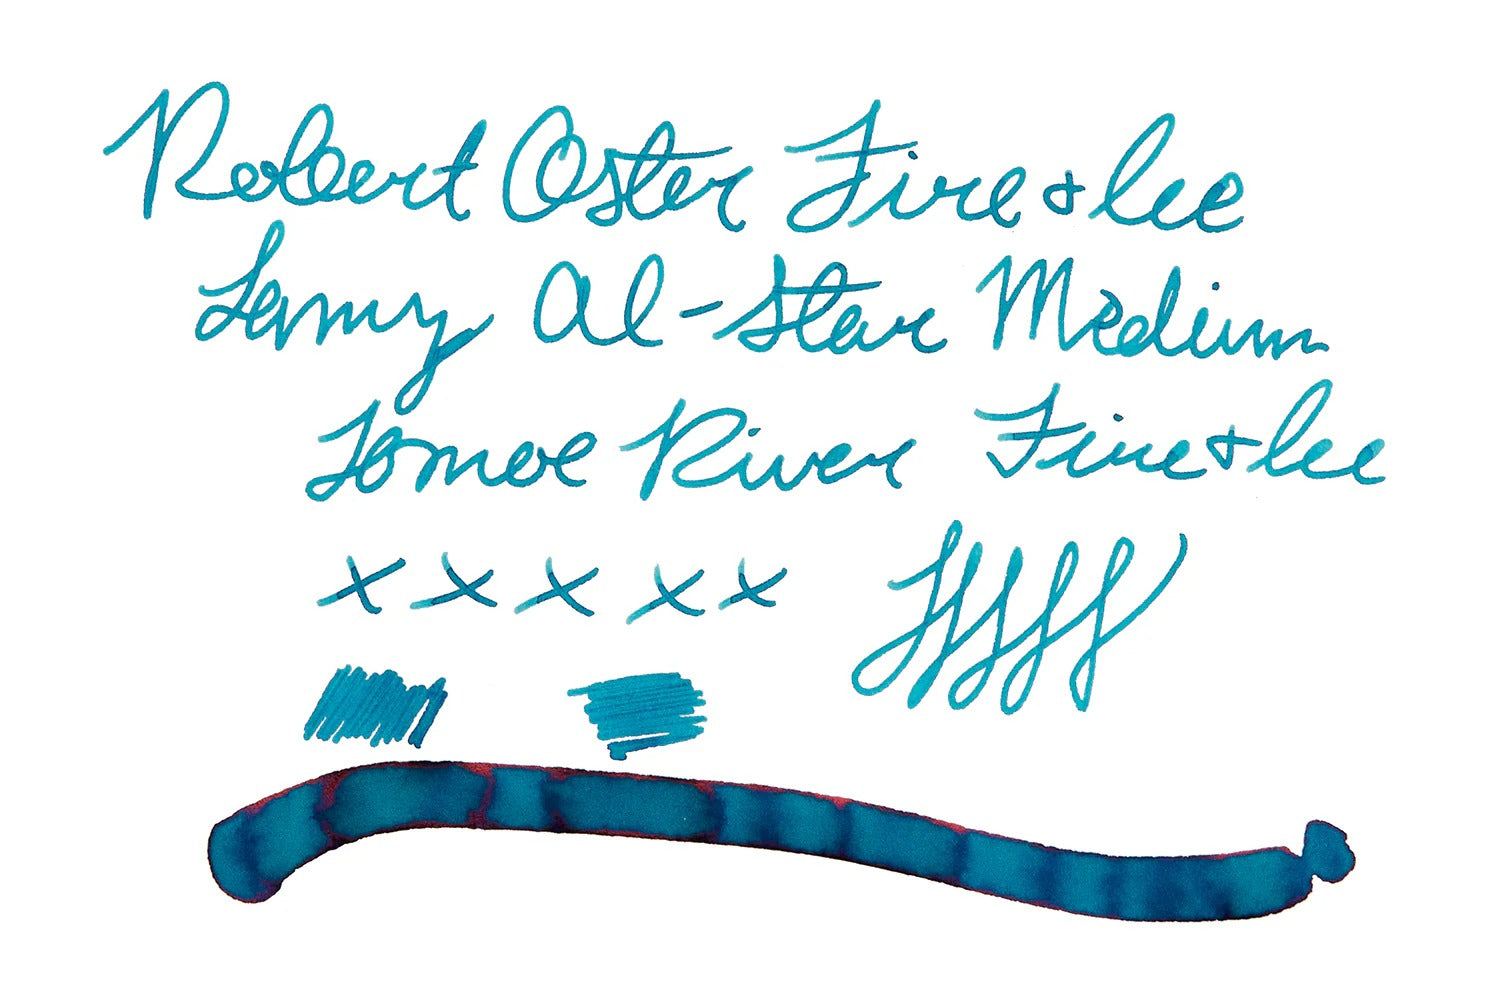 Robert Oster Fire + Ice
Lamy Al-Star Medium
Tomoe River Fire + Ice
x x x x x